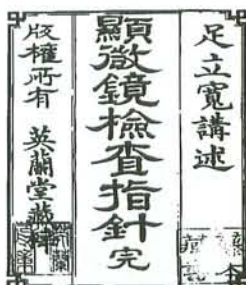 足立寬講述
顯微鏡檢査指針 完
版權所有 英蘭堂藏梓